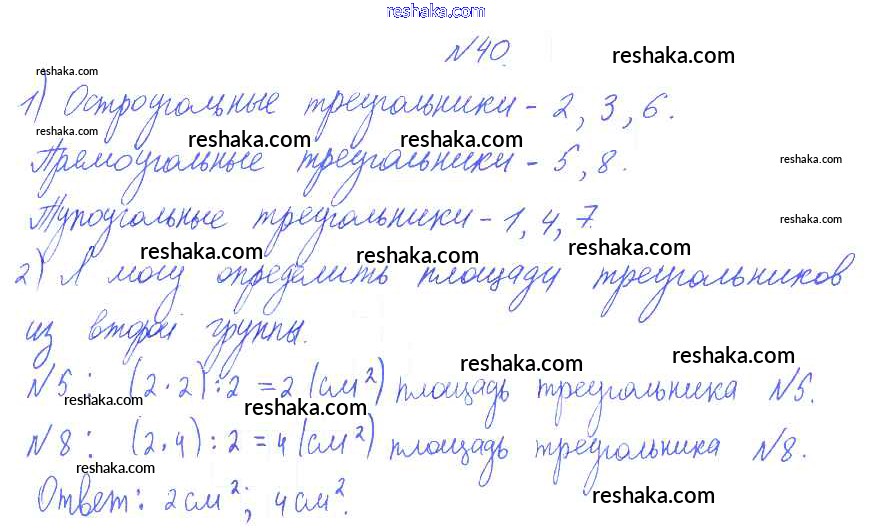 reshaka.com
№40.
reshaka.com
reshaka.com
1) Остроугольные треугольники - 2, 3, 6.
reshaka.com
reshaka.com reshaka.com
Прямоугольные треугольники - 5, 8.
reshaka.com
Тупоугольные треугольники - 1, 4, 7.
reshaka.com
reshaka.com reshaka.com
2) Я могу определить площадь треугольников
из второй группы.
reshaka.com reshaka.com
№5: (2·2):2 = 2 (см²) площадь треугольника №5.
reshaka.com reshaka.com
№8: (2·4):2 = 4 (см²) площадь треугольника №8.
reshaka.com
Ответ: 2 см²; 4 см².
reshaka.com